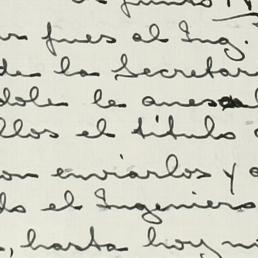 fues al Ing.
de la Secretar
dole le anexa
llos el título
on enviarlos y
do el Ingeniero
, hasta hoy ni